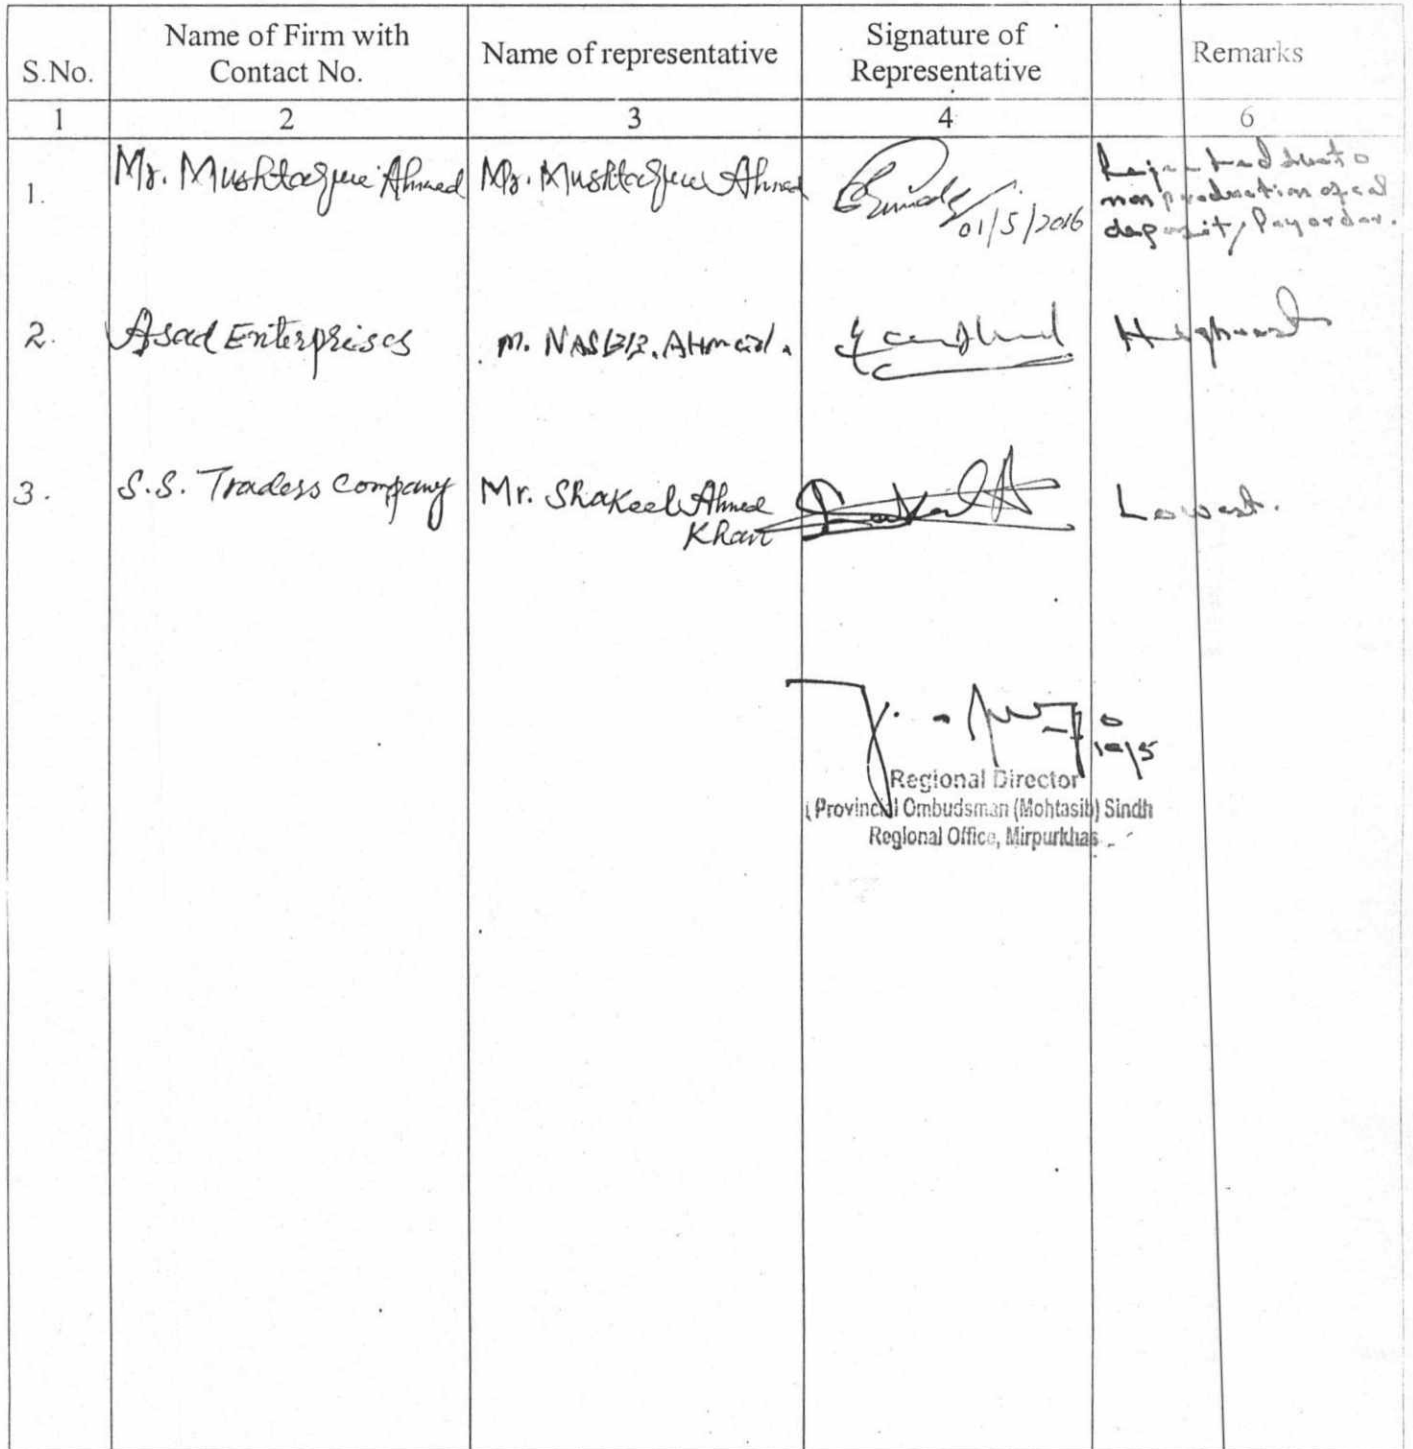 S.No. Name of Firm with Contact No. Name of representative Signature of Representative Remarks
1 2 3 4 6
1. Mr. Mushtaque Ahmed Mr. Mushtaque Ahmed 01/5/2016 Rejected due to
non production of cal
deposit/Pay order.
2. Asad Enterprises M. NASEER. AHmed. Highest
3. S.S. Traders Company Mr. Shakeel Ahmed Lowest.
Khan
10/5
Regional Director
Provincial Ombudsman (Mohtasib) Sindh
Regional Office, Mirpurkhas